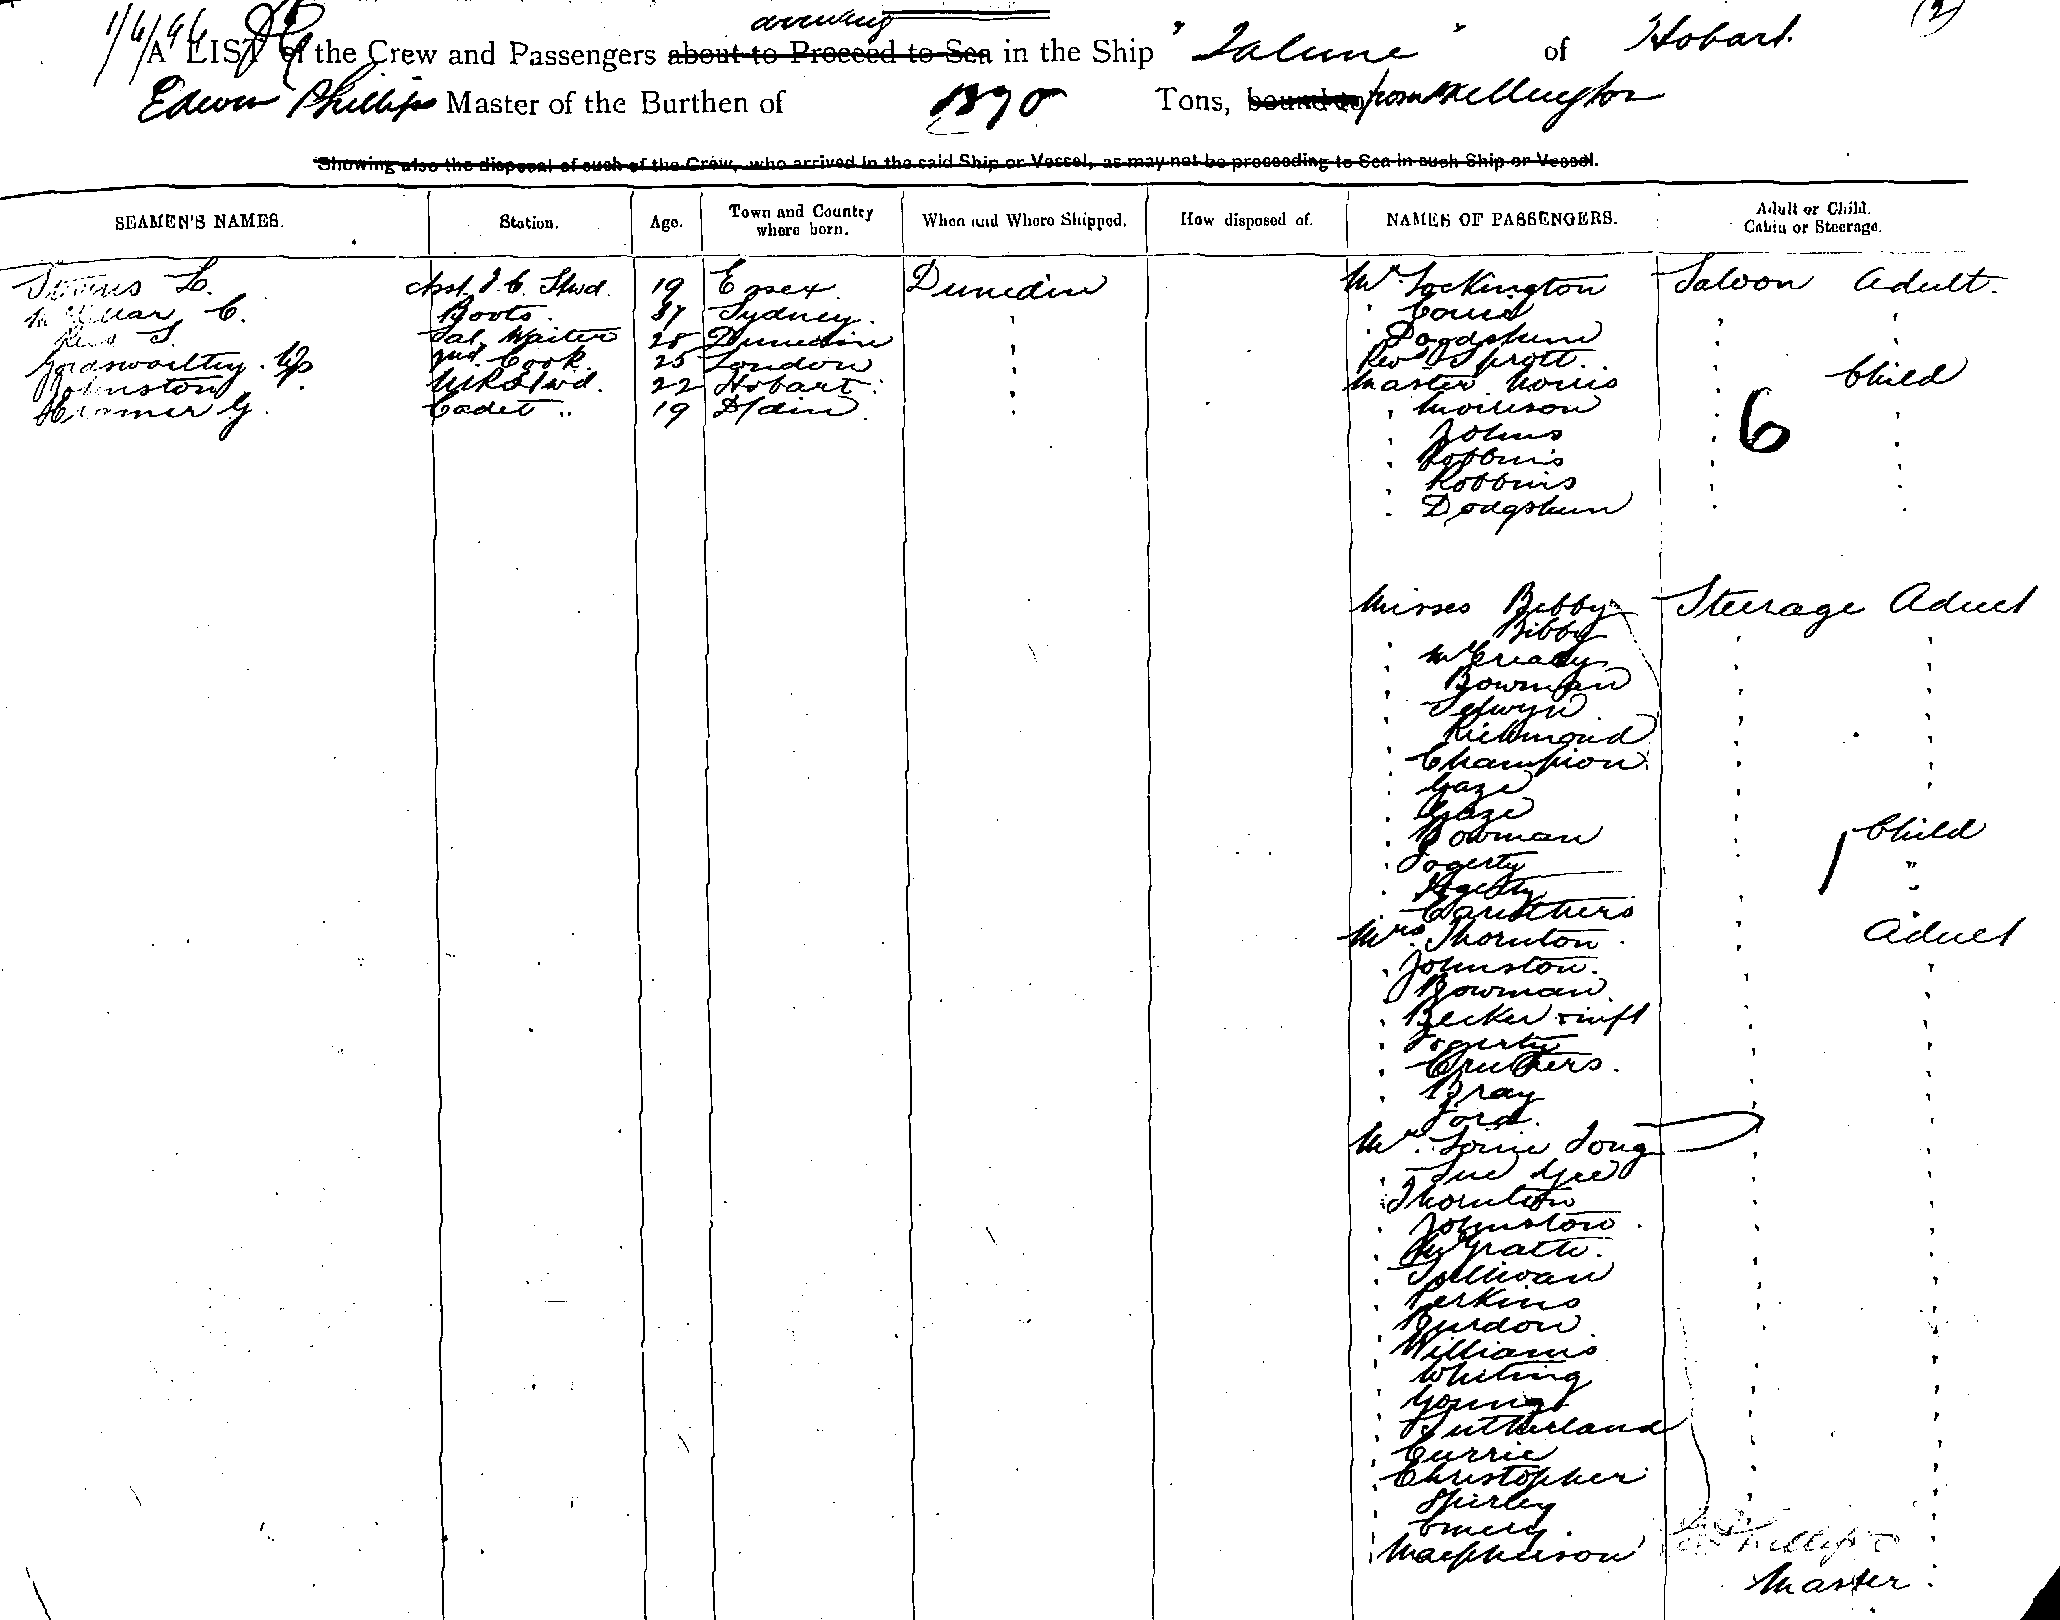 1/6/96 (2)
arriving
A LIST of the Crew and Passengers about to Proceed to Sea in the Ship "Talune" of Hobart.
Edwin Phillips Master of the Burthen of 1370 Tons, bound to from Wellington
Showing also the disposal of such of the Crew, who arrived in the said Ship or Vessel, as may not be proceeding to Sea in such Ship or Vessel.
SEAMEN'S NAMES. Station. Age. Town and Country where born. When and Where Shipped. How disposed of. NAMES OF PASSENGERS. Adult or Child. Cabin or Steerage.
L. Asst. F. C. Stwd. 19 Essex Dunedin Mr Lockington Saloon Adult.
McMillar C. Boots. 37 Sydney. " "
Reid S. Sal. Waiter 28 Dunedin " Dodgshun
Goldsworthy. W 2nd Cook 25 London " Revd Sprott.
Johnston Stwd. 22 Hobart " Master Norris Child
Kramer G. Cadet " 19 D/din " " Morrison
" Johns
" Robbins 6
" Robbins
" Dodgshun
Misses Bibby Steerage Adult
" Bibby
" McCready
" Bowman
" Selwyn
" Richmond
" Champion
" Gaze
" Gaze
" Bowman Child
" Fogerty "
" Fogerty "
" Caruthers "
Mrs Thornton Adult
" Johnston.
" Bowman
" Becker & inft
" Fogerty
" Cruthers.
" Bray
" Ford.
Mr. Louie Tong
" Sue Yee
" Thornton
" Johnston
" McGrath.
" Sullivan
" Perkins
" Burdon
" Williams
" Whiting
" Young
" Sutherland
" Currie
" Christopher
" Shirley
" Emery.
" Macpherson Phillips
Master.